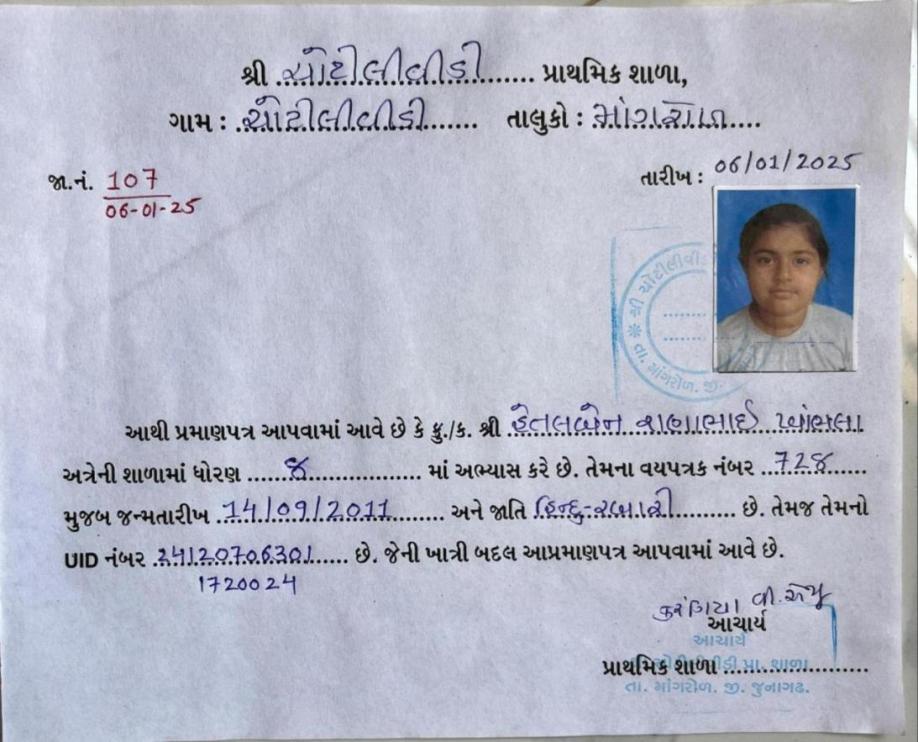 શ્રી ચોટીલીવીડી પ્રાથમિક શાળા,
ગામ : ચોટીલીવીડી તાલુકો : માંગરોળ
જા.નં. 107
06-01-25
તારીખ : 06/01/2025
શ્રી ચોટીલીવી
તા. માંગરોળ. જી.
આથી પ્રમાણપત્ર આપવામાં આવે છે કે કુ./ક. શ્રી હેતલબેન રાણાભાઈ ખાંભલા
અત્રેની શાળામાં ધોરણ ૪ માં અભ્યાસ કરે છે. તેમના વયપત્રક નંબર 72૪
મુજબ જન્મતારીખ 14/09/2011 અને જાતિ હિન્દુ-રબારી છે. તેમજ તેમનો
UID નંબર 24120706301 છે. જેની ખાત્રી બદલ આપ્રમાણપત્ર આપવામાં આવે છે.
1720024
કરંગિયા વી.
આચાર્ય
આચાર્ય
પ્રાથમિક શાળા
પ્રા. શાળા
તા. માંગરોળ. જી. જુનાગઢ.